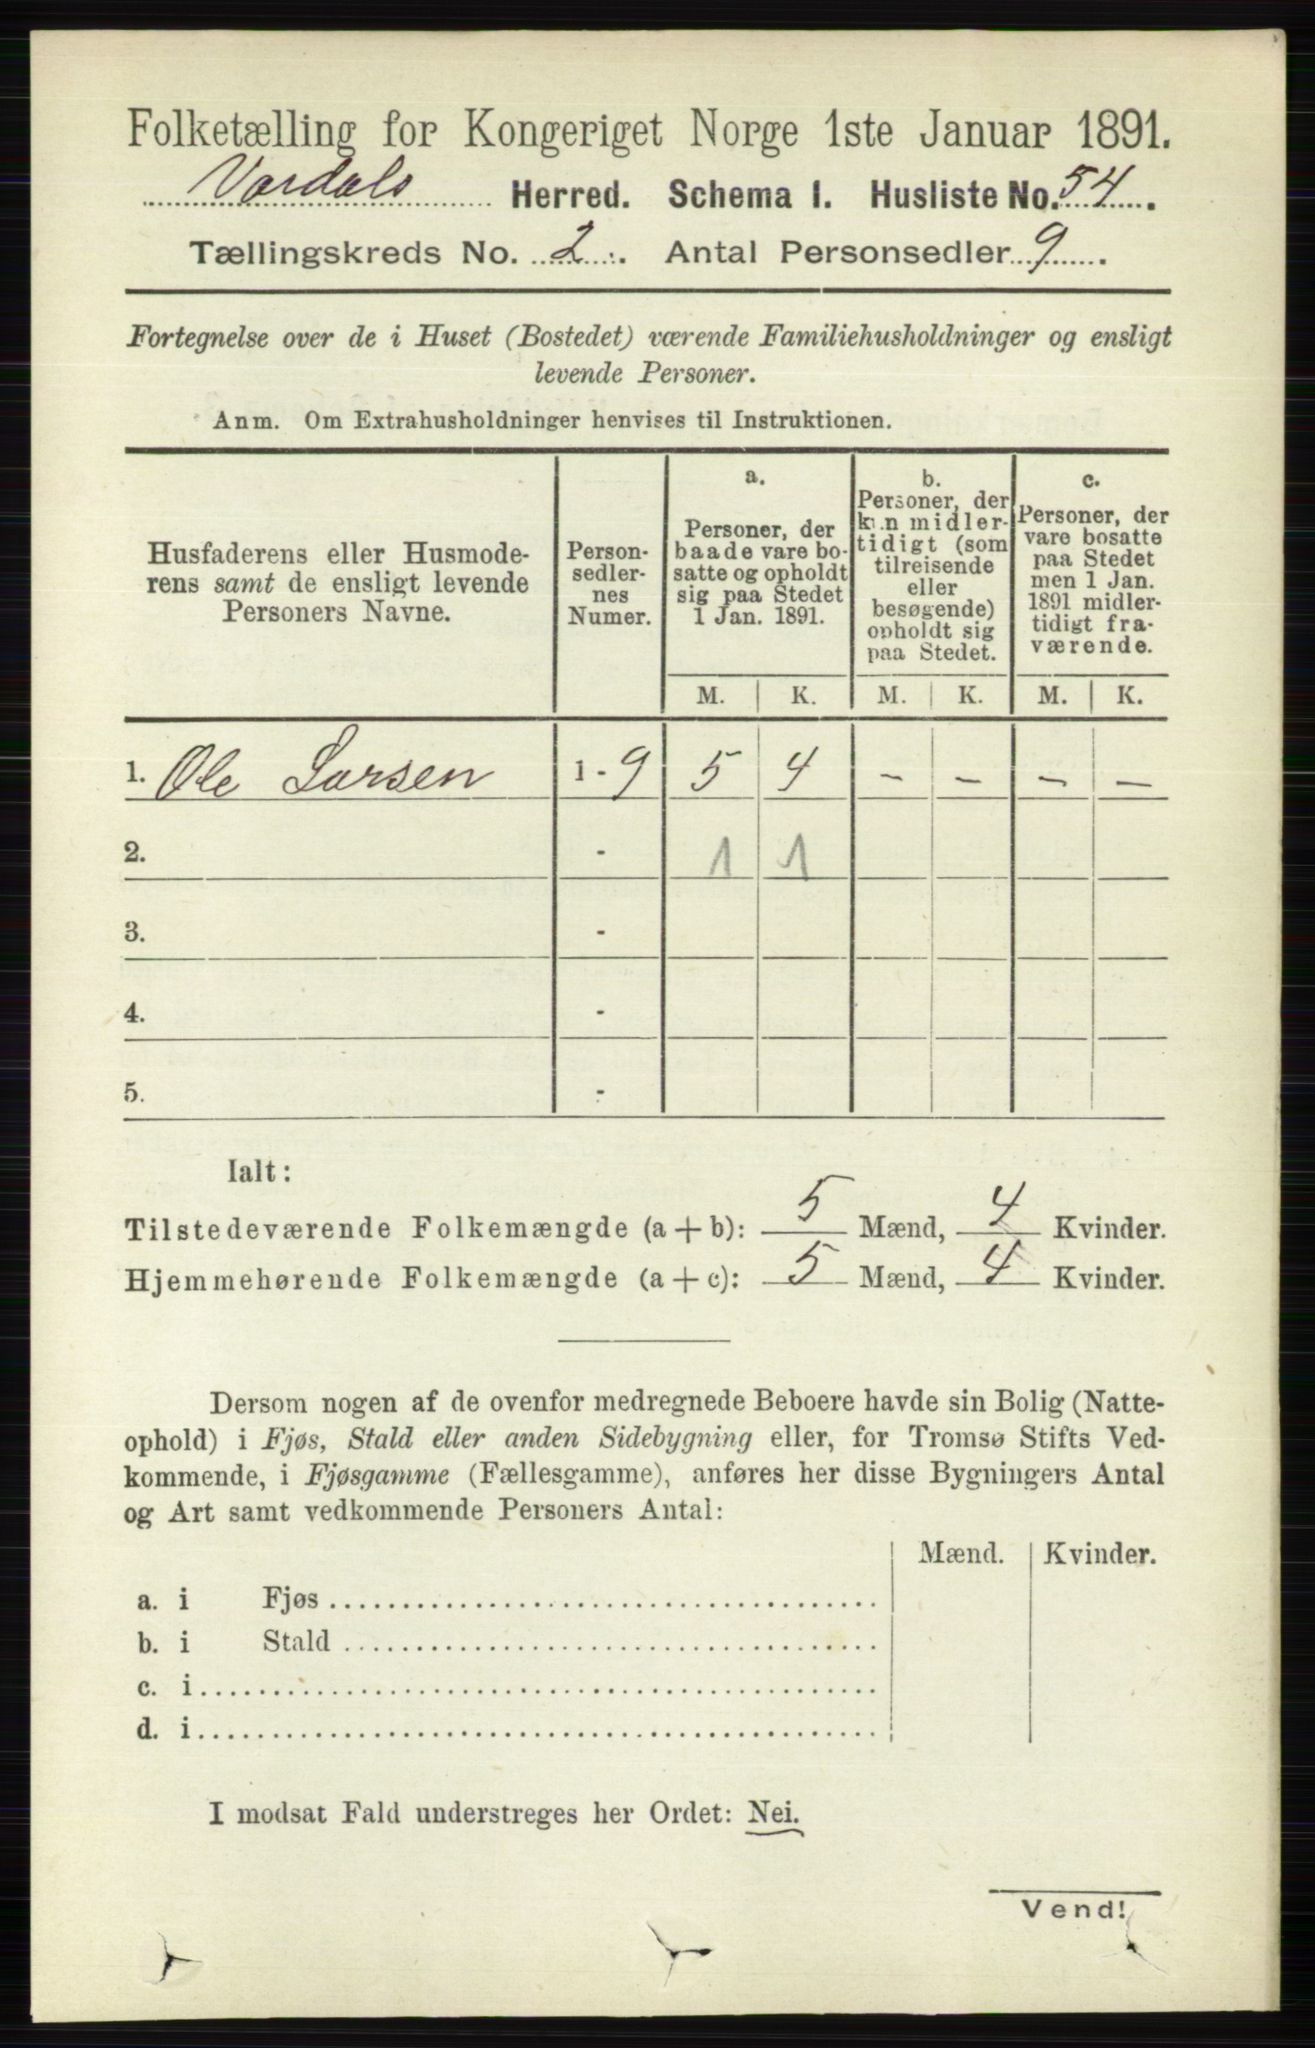 Folketælling for Kongeriget Norge 1ste Januar 1891.
Vardals Herred. Schema I. Husliste No. 54.
Tællingskreds No. 2. Antal Personsedler 9.
Fortegnelse over de i Huset (Bostedet) værende Familiehusholdninger og ensligt
levende Personer.
Anm. Om Extrahusholdninger henvises til Instruktionen.
Husfaderens eller Husmode-
rens samt de ensligt levende
Personers Navne.
Person-
sedler-
nes
Numer.
a.
Personer, der
baade vare bo-
satte og opholdt
sig paa Stedet
1 Jan. 1891.
b.
Personer, der
kun midler-
tidigt (som
tilreisende
eller
besøgende)
opholdt sig
paa Stedet.
c.
Personer, der
vare bosatte
paa Stedet
men 1 Jan.
1891 midler-
tidigt fra-
værende.
M. K. M. K. M. K.
1. Ole Larsen 1 - 9 5 4 - - - -
2. - 1 1
3. -
4. -
5. -
Ialt:
Tilstedeværende Folkemængde (a + b): 5 Mænd, 4 Kvinder.
Hjemmehørende Folkemængde (a + c): 5 Mænd, 4 Kvinder.
Dersom nogen af de ovenfor medregnede Beboere havde sin Bolig (Natte-
ophold) i Fjøs, Stald eller anden Sidebygning eller, for Tromsø Stifts Ved-
kommende, i Fjøsgamme (Fællesgamme), anføres her disse Bygningers Antal
og Art samt vedkommende Personers Antal:
Mænd. Kvinder.
a. i Fjøs
b. i Stald
c. i
d. i
I modsat Fald understreges her Ordet: Nei.
Vend!